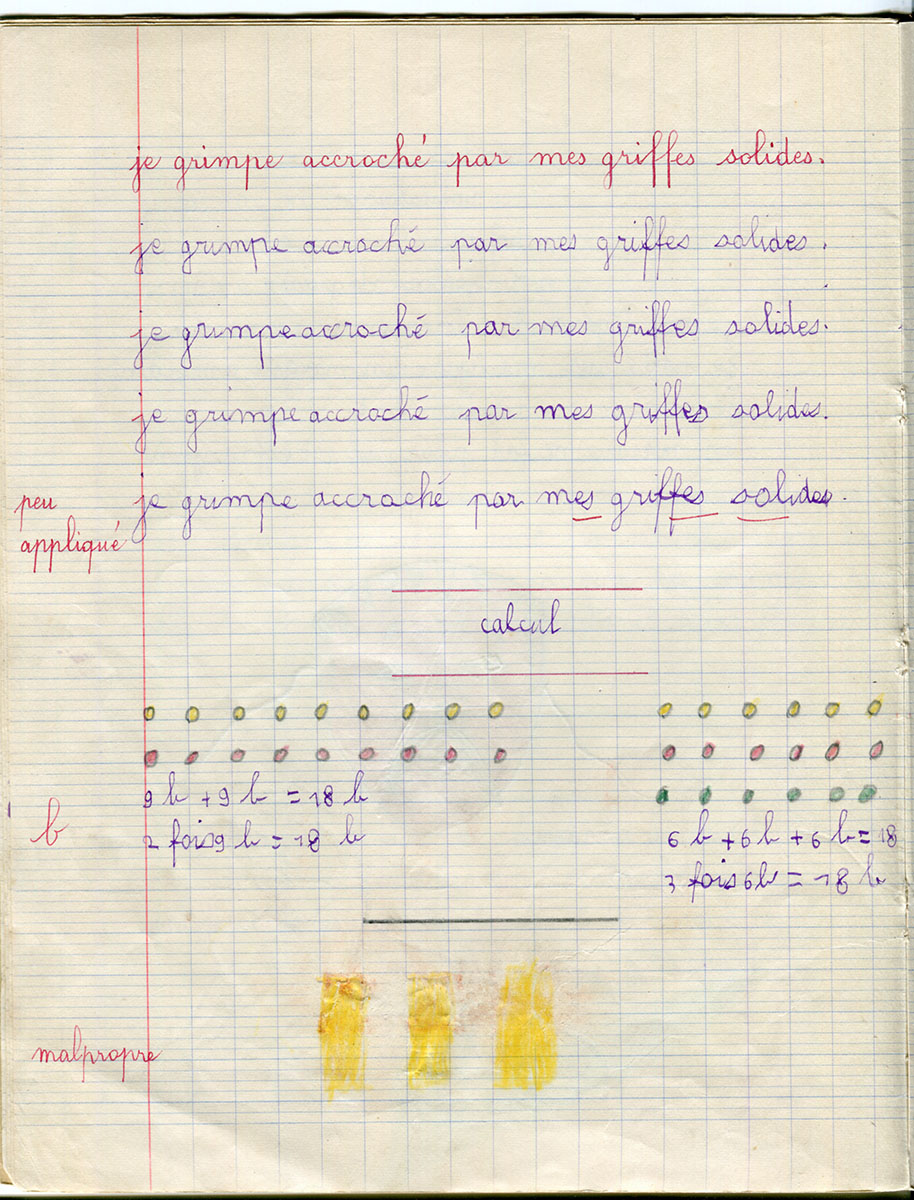 je grimpe accroché par mes griffes solides.
je grimpe accroché par mes griffes solides.
je grimpe accroché par mes griffes solides.
je grimpe accroché par mes griffes solides.
peu
appliqué
je grimpe accroché par mes griffes solides.
calcul
9 b + 9 b = 18 b
2 fois 9 b = 18 b
b
6 b + 6 b + 6 b = 18
3 fois 6 b = 18 b
malpropre